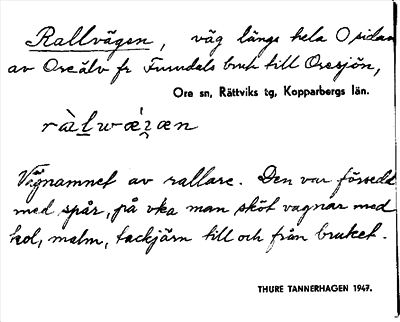 Rallvägen, väg längs hela O sidan
av Oreälv fr Furudals bruk till Oresjön,
Ore sn, Rättviks tg, Kopparbergs län.
ràḷwǽʒæn
Vägnamnet av rallare. Den var försedd
med spår, på vka man sköt vagnar med
kol, malm, tackjärn till och från bruket.
THURE TANNERHAGEN 1947.